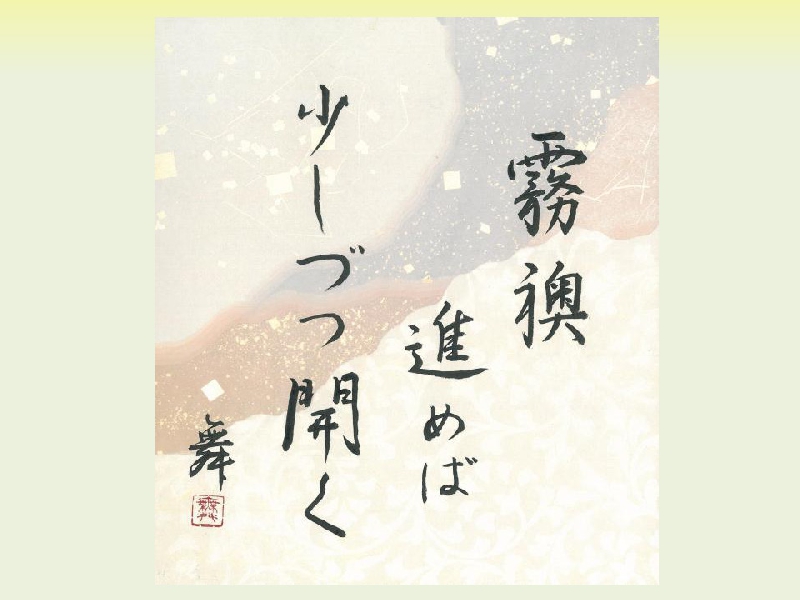 霧襖
進めば
少しづつ開く
舞